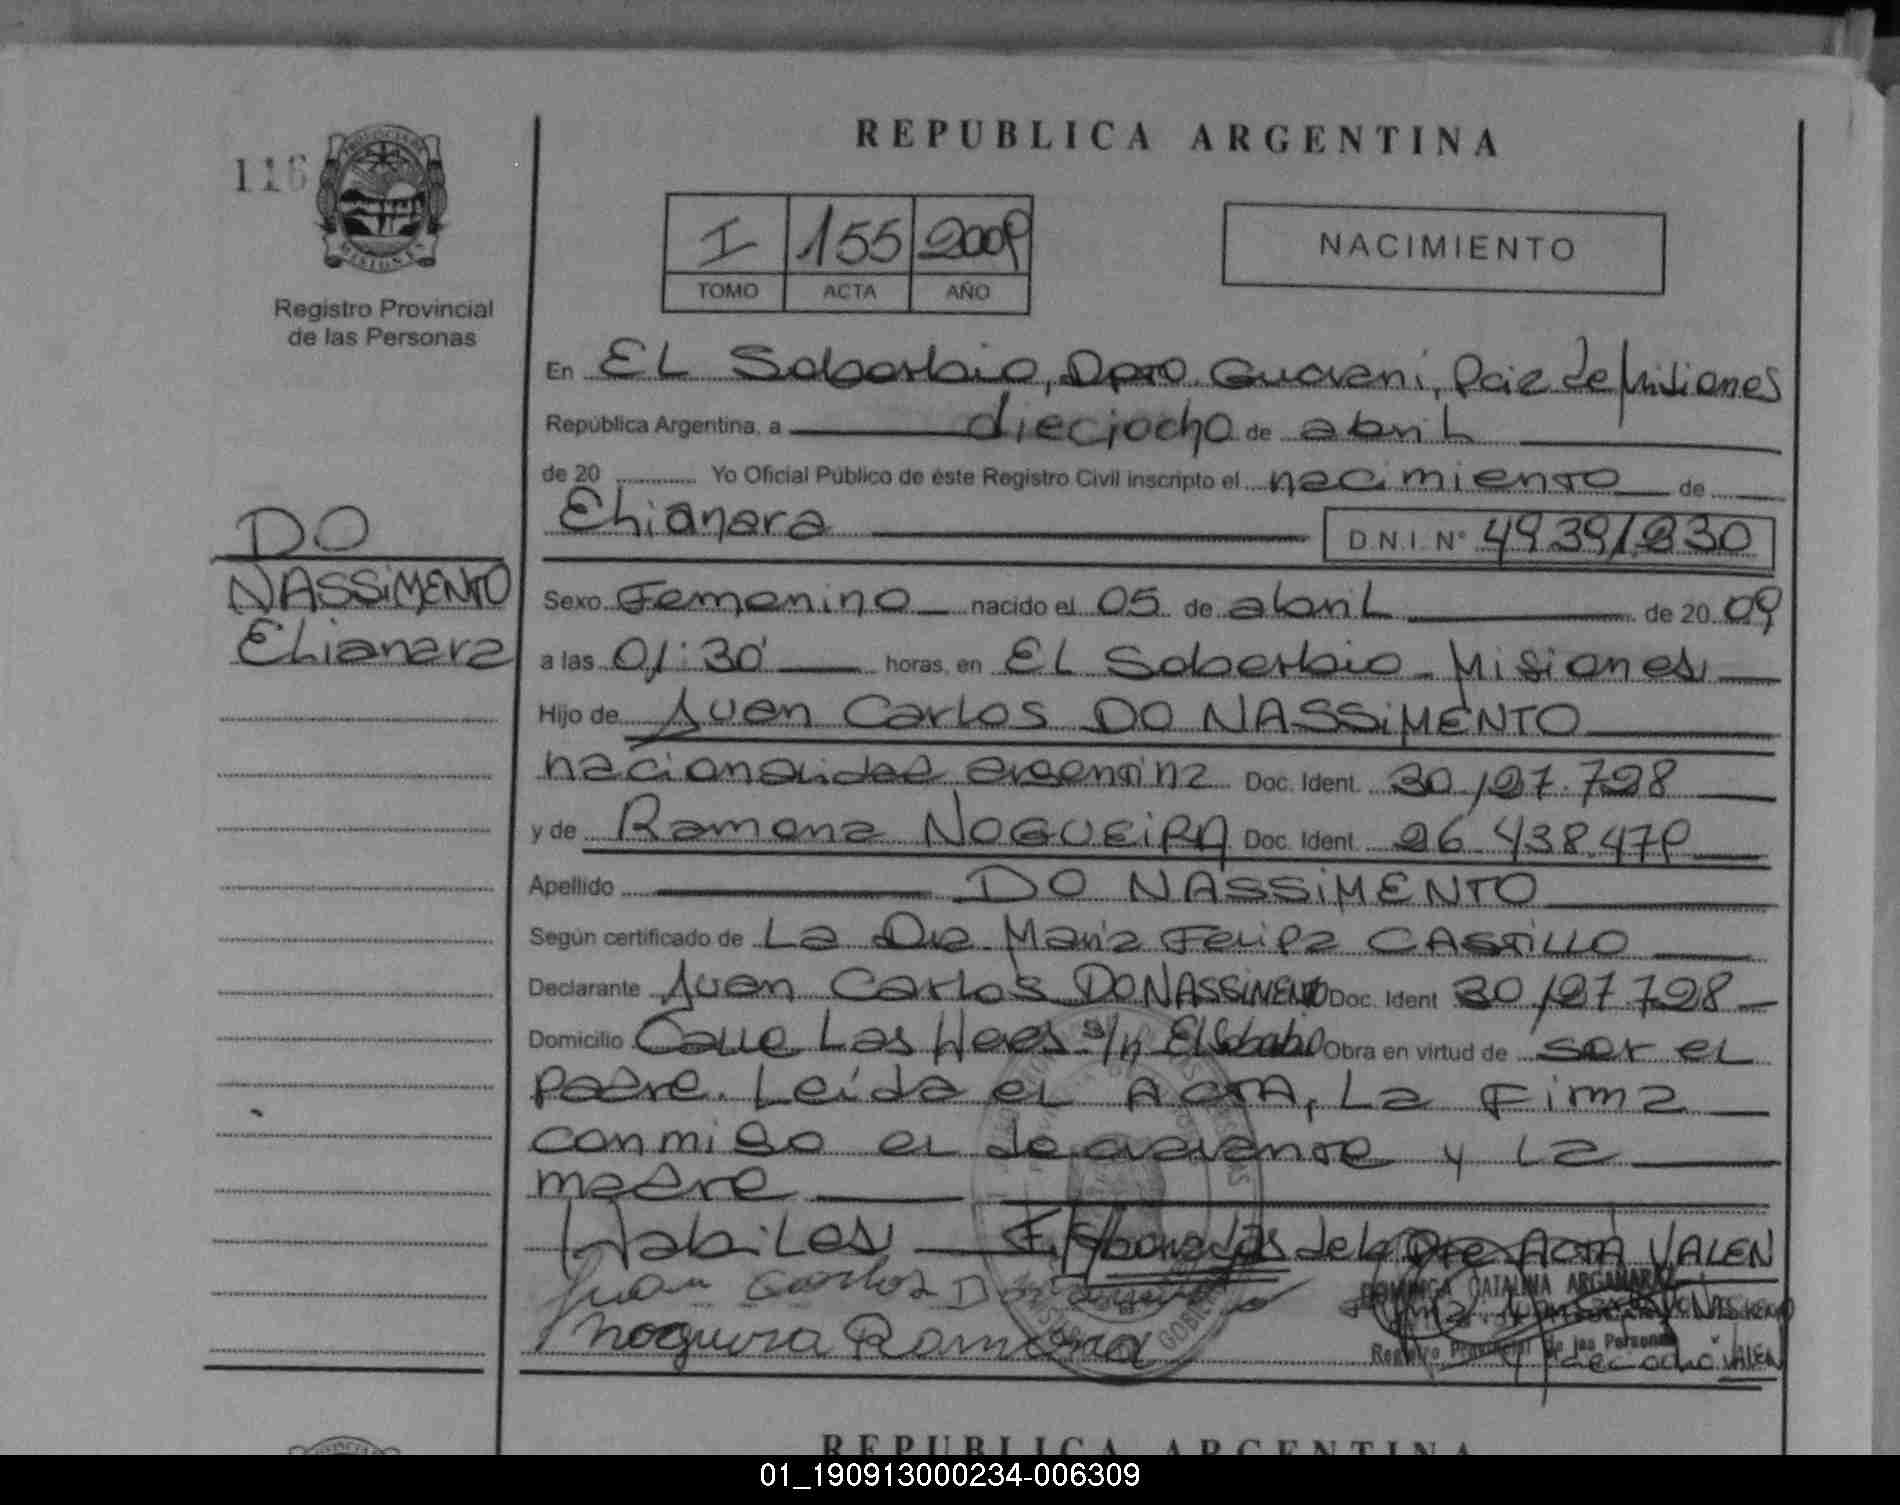 REPUBLICA ARGENTINA
116
I 155 2009
TOMO ACTA AÑO
NACIMIENTO
Registro Provincial
de las Personas
En EL Soberbio, Dpto. Guarani, Pcia de Misiones
República Argentina, a dieciocho de abril
de 20 Yo Oficial Público de éste Registro Civil inscripto el nacimiento de
Elianara D.N.I. Nº 49391230
DO
NASSiMENTO
Elianara
Sexo Femenino nacido el 05 de abril de 20 09
a las 01:30' horas, en EL Soberbio - Misiones
Hijo de Juan Carlos DO NASSiMENTO
nacionalidad argentina Doc. Ident. 30.127.728
y de Ramona NOGUEiRA Doc. Ident. 26.438.479
Apellido DO NASSiMENTO
Según certificado de La Dra Maria Felipa CASTiLLO
Declarante Juan Carlos DO NASSiMENTO Doc. Ident 30.127.728
Domicilio Calle Las Heras s/n El Soberbio Obra en virtud de ser el
padre. Leída el ACTA, La Firma
conmigo el declarante y La
madre
Habiles E/ borradas de la Pte ACTA VALEN
Juan Carlos Do
Noguera Ramona
DOMINGA CATALINA ARGAMARAZ
Registro Provincial de las Personas
dieciocho VALEN
REPUBLICA ARGENTINA
01_190913000234-006309